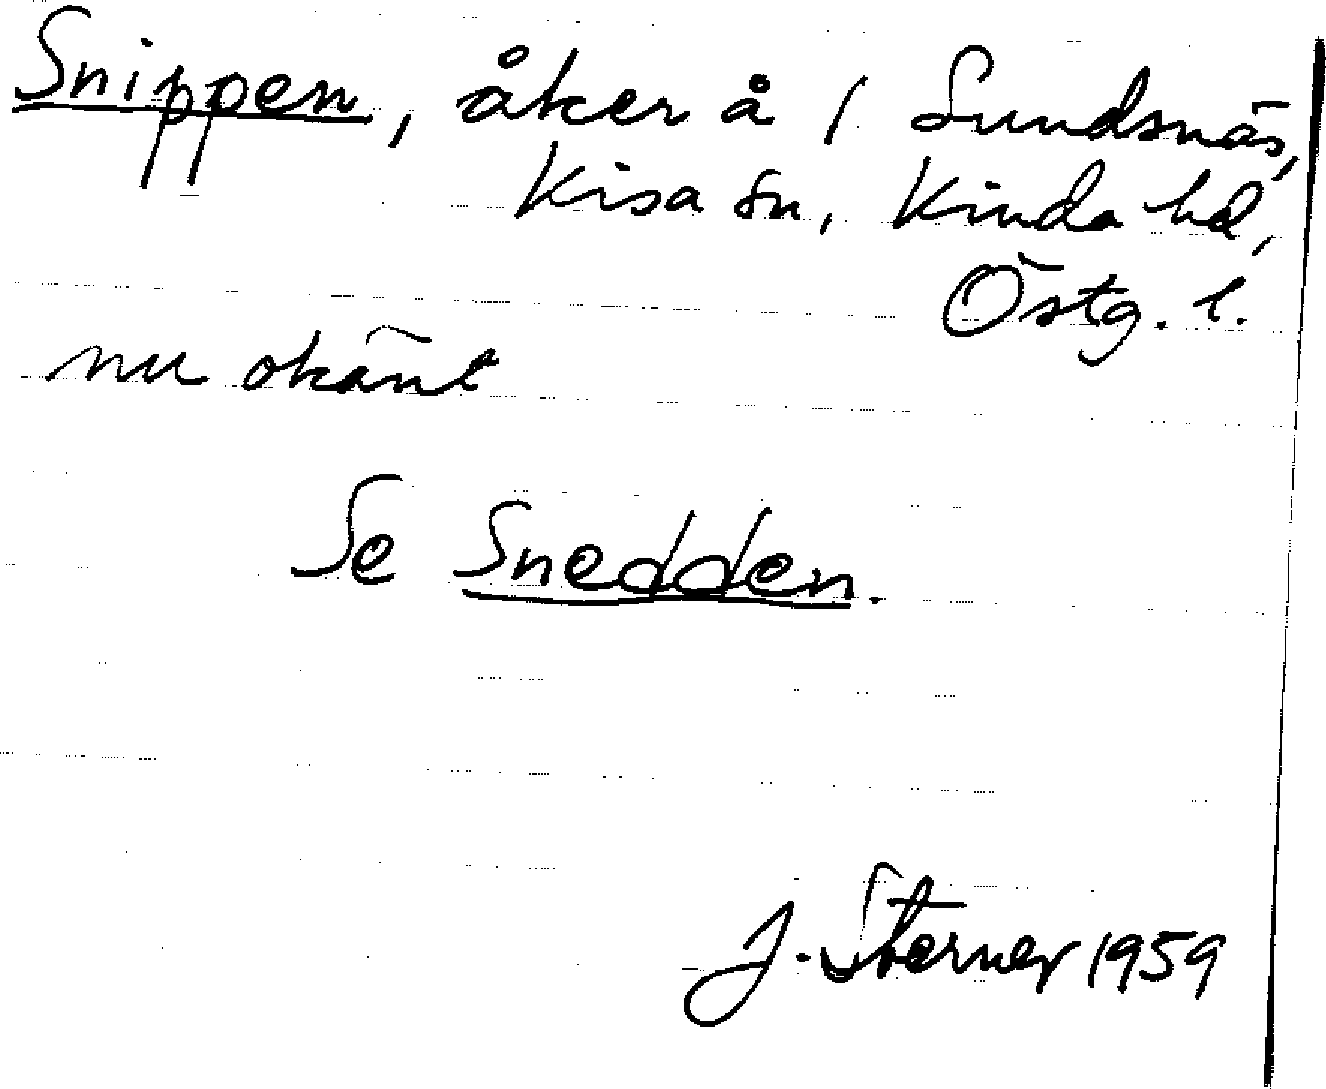 Snippen, åker å / Sundsnäs,
Kisa sn, Kinda hd,
Östg. l.
nu okänt
Se Snedden.
J. Sterner 1959